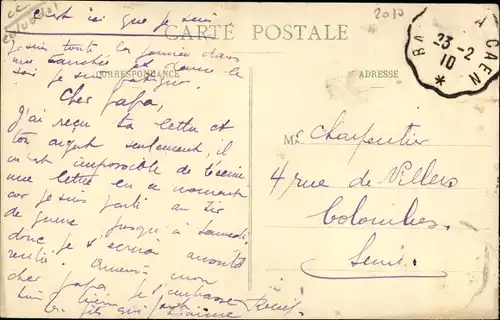 C'est ici que je suis
CARTE POSTALE
2010
BA CAEN
23-2
10
je suis toute la journée dans
une tranchée et dans le
soir je suis fatigué
CORRESPONDANCE
ADRESSE
Cher papa,
J'ai reçu ta lettre et
ton argent seulement, il
m'est impossible de t'écrire
une lettre en ce moment
car je suis parti au tir
de guerre jusqu'à samedi
donc je t'écrirai aussitôt
rentré.
cher papa, je t'embrasse
bien
ton fils qui t'aime
Mr Charpentier
4 rue de Villers
Colombes
Seine